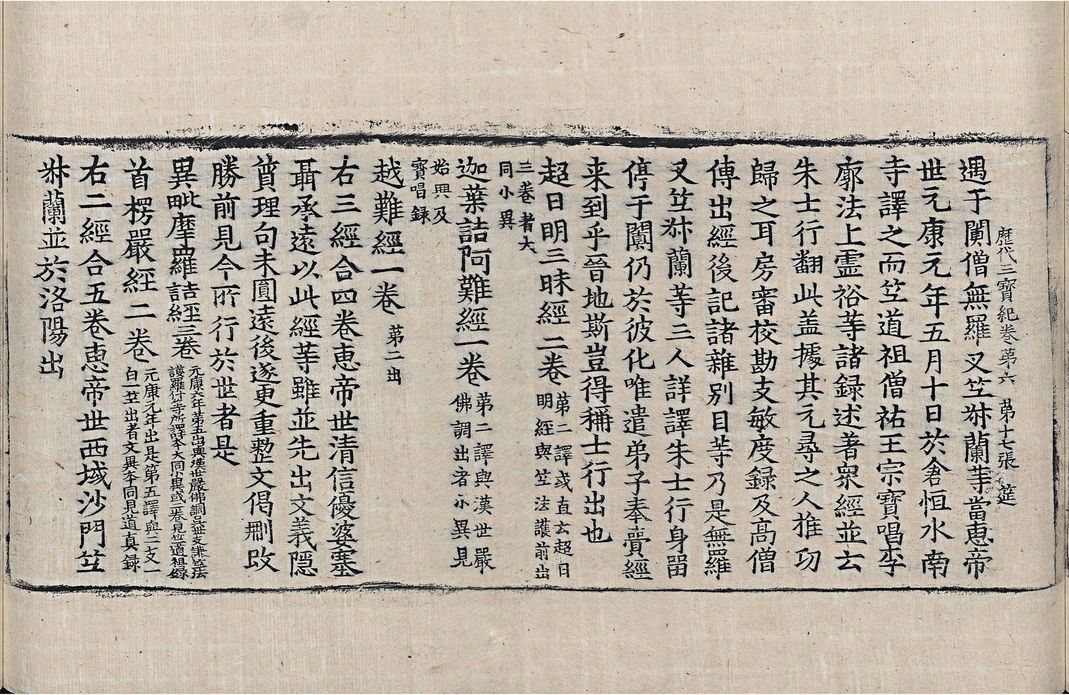 遇于闐僧無羅叉竺𠦑蘭等當惠帝
歷代三寶紀卷第六 第十七張 筵
世元康元年五月十日於倉恒水南
寺譯之而竺道祖僧祐王宗寶唱李
廓法上靈裕等諸録述著衆經並云
朱士行翻此盖據其元尋之人推功
歸之耳房審校勘支敏度録及髙僧
傳出經後記諸雜別目等乃是無羅
叉竺𠦑蘭等三人詳譯朱士行身留
停于闐仍於彼化唯遣弟子奉賫經
来到乎晉地斯豈得稱士行出也
超日明三昧經二卷 第二譯或直云超日
明經與竺法護前出
三卷者大
同小異
迦葉詰阿難經一卷 第二譯與漢世嚴
佛調出者小異見
始興及
寳唱録
越難經一卷 第二出
右三經合四卷恵帝世清信優婆塞
聶承遠以此經等雖並先出文義隱
質理句未圓遠後遂更重整文偈刪改
勝前見今所行於世者是
異毗摩羅詰經三卷 元康六年第五出與漢世嚴佛調吴世支謙竺法
護羅什等所譯本大同小異或二卷見竺道祖録
首楞嚴經二卷 元康元年出是第五譯與二支一
白一竺出者文異本同見道真録
右二經合五卷恵帝世西域沙門竺
𠦑蘭並於洛陽出